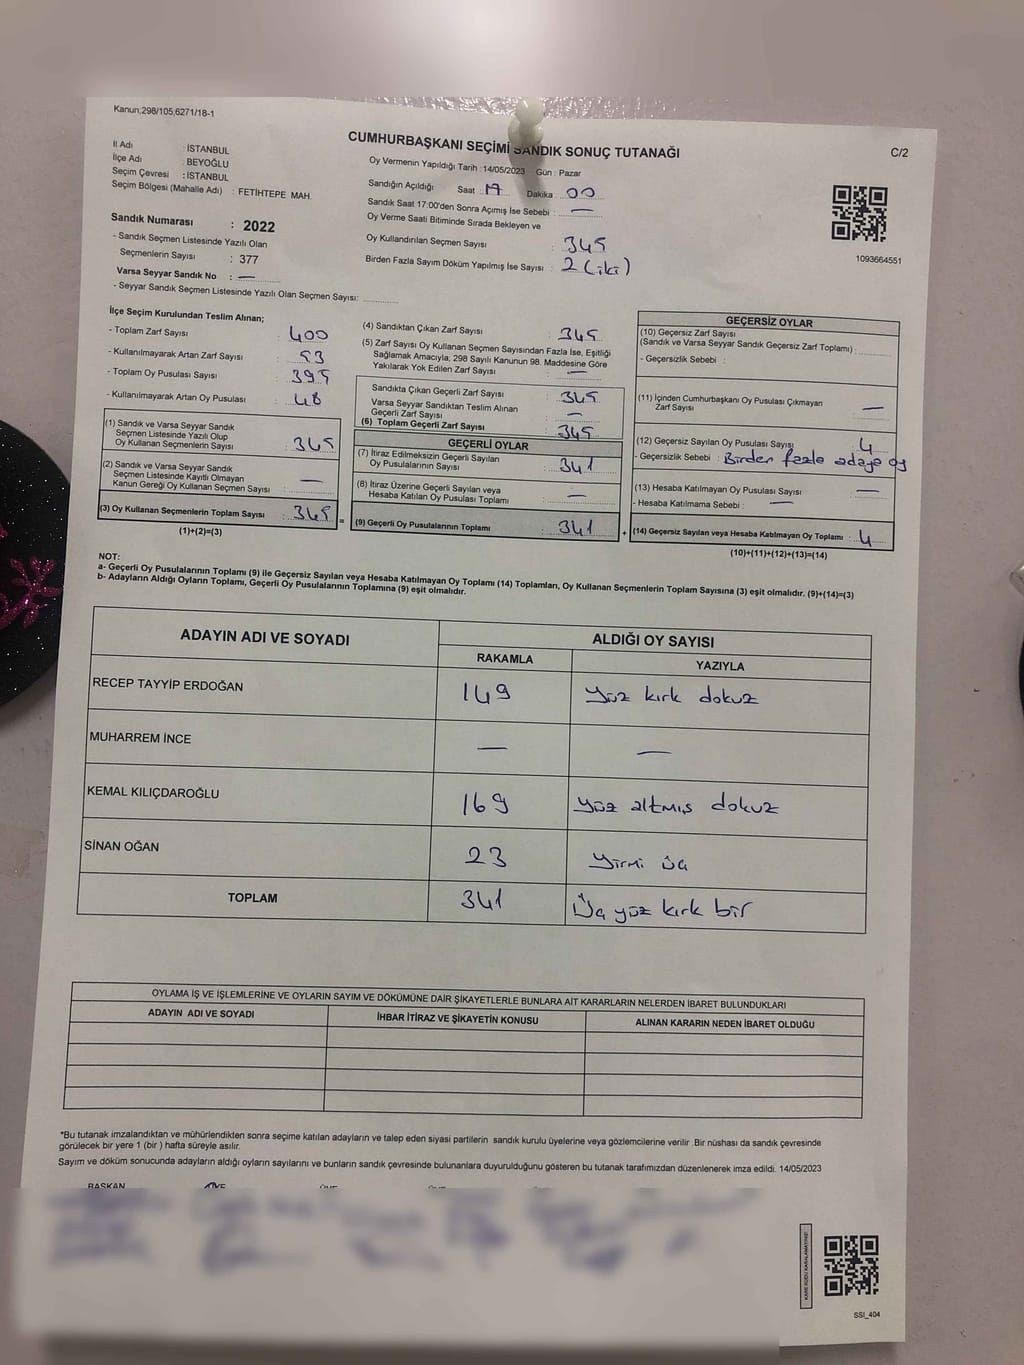 Kanun;298/105,6271/18-1
CUMHURBAŞKANI SEÇİMİ SANDIK SONUÇ TUTANAĞI
C/2
İl Adı : İSTANBUL
İlçe Adı : BEYOĞLU
Seçim Çevresi : İSTANBUL
Seçim Bölgesi (Mahalle Adı) : FETİHTEPE MAH.
Oy Vermenin Yapıldığı Tarih : 14/05/2023 Gün : Pazar
Sandığın Açıldığı Saat : 17 Dakika : 00
Sandık Saat 17:00'den Sonra Açımış İse Sebebi : —
Oy Verme Saati Bitiminde Sırada Bekleyen ve
Oy Kullandırılan Seçmen Sayısı : 345
Birden Fazla Sayım Döküm Yapılmış İse Sayısı : 2 (iki)
1093664551
Sandık Numarası : 2022
- Sandık Seçmen Listesinde Yazılı Olan
Seçmenlerin Sayısı : 377
Varsa Seyyar Sandık No : —
- Seyyar Sandık Seçmen Listesinde Yazılı Olan Seçmen Sayısı:
İlçe Seçim Kurulundan Teslim Alınan;
- Toplam Zarf Sayısı : 400
- Kullanılmayarak Artan Zarf Sayısı : 53
- Toplam Oy Pusulası Sayısı :
- Kullanılmayarak Artan Oy Pusulası : 48
(1) Sandık ve Varsa Seyyar Sandık
Seçmen Listesinde Yazılı Olup
Oy Kullanan Seçmenlerin Sayısı : 345
(2) Sandık ve Varsa Seyyar Sandık
Seçmen Listesinde Kayıtlı Olmayan
Kanun Gereği Oy Kullanan Seçmen Sayısı : —
(3) Oy Kullanan Seçmenlerin Toplam Sayısı : 345
(1)+(2)=(3)
(4) Sandıktan Çıkan Zarf Sayısı : 345
(5) Zarf Sayısı Oy Kullanan Seçmen Sayısından Fazla İse, Eşitliği
Sağlamak Amacıyla; 298 Sayılı Kanunun 98. Maddesine Göre
Yakılarak Yok Edilen Zarf Sayısı : —
Sandıkta Çıkan Geçerli Zarf Sayısı : 345
Varsa Seyyar Sandıktan Teslim Alınan
Geçerli Zarf Sayısı : —
(6) Toplam Geçerli Zarf Sayısı : 345
GEÇERLİ OYLAR
(7) İtiraz Edilmeksizin Geçerli Sayılan
Oy Pusulalarının Sayısı : 341
(8) İtiraz Üzerine Geçerli Sayılan veya
Hesaba Katılan Oy Pusulası Toplamı : —
= (9) Geçerli Oy Pusulalarının Toplamı : 341
GEÇERSİZ OYLAR
(10) Geçersiz Zarf Sayısı
(Sandık ve Varsa Seyyar Sandık Geçersiz Zarf Toplamı) :
- Geçersizlik Sebebi :
(11) İçinden Cumhurbaşkanı Oy Pusulası Çıkmayan
Zarf Sayısı : —
(12) Geçersiz Sayılan Oy Pusulası Sayısı : 4
- Geçersizlik Sebebi : Birden fazla adaya oy
(13) Hesaba Katılmayan Oy Pusulası Sayısı : —
- Hesaba Katılmama Sebebi : —
+ (14) Geçersiz Sayılan veya Hesaba Katılmayan Oy Toplamı : 4
(10)+(11)+(12)+(13)=(14)
NOT:
a- Geçerli Oy Pusulalarının Toplamı (9) ile Geçersiz Sayılan veya Hesaba Katılmayan Oy Toplamı (14) Toplamları, Oy Kullanan Seçmenlerin Toplam Sayısına (3) eşit olmalıdır. (9)+(14)=(3)
b- Adayların Aldığı Oyların Toplamı, Geçerli Oy Pusulalarının Toplamına (9) eşit olmalıdır.
ADAYIN ADI VE SOYADI ALDIĞI OY SAYISI
RAKAMLA YAZIYLA
RECEP TAYYİP ERDOĞAN 149 Yüz kırk dokuz
MUHARREM İNCE — —
KEMAL KILIÇDAROĞLU 169 Yüz altmış dokuz
SİNAN OĞAN 23 Yirmi üç
TOPLAM 341 Üç yüz kırk bir
OYLAMA İŞ VE İŞLEMLERİNE VE OYLARIN SAYIM VE DÖKÜMÜNE DAİR ŞİKAYETLERLE BUNLARA AİT KARARLARIN NELERDEN İBARET BULUNDUKLARI
ADAYIN ADI VE SOYADI İHBAR İTİRAZ VE ŞİKAYETİN KONUSU ALINAN KARARIN NEDEN İBARET OLDUĞU
*Bu tutanak imzalandıktan ve mühürlendikten sonra seçime katılan adayların ve talep eden siyasi partilerin sandık kurulu üyelerine veya gözlemcilerine verilir .Bir nüshası da sandık çevresinde
görülecek bir yere 1 (bir ) hafta süreyle asılır.
Sayım ve döküm sonucunda adayların aldığı oyların sayılarını ve bunların sandık çevresinde bulunanlara duyurulduğunu gösteren bu tutanak tarafımızdan düzenlenerek imza edildi. 14/05/2023
BAŞKAN ÜYE ÜYE
SSI_404